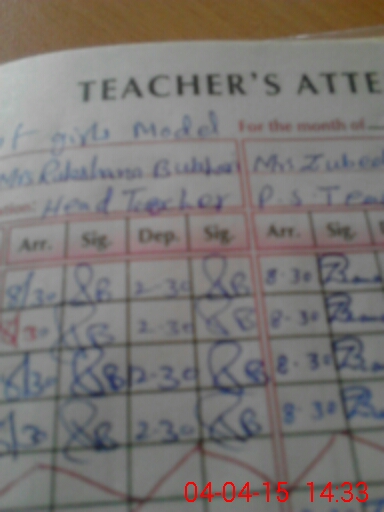 TEACHER'S ATTE
of girls Model For the month of
Mrs Rukhsana Bukhari Mrs Zubed
Head Teacher P.S Tea
Arr. Sig. Dep. Sig. Arr. Sig.
8/30 RB 2-30 RB 8-30
8/30 RB 2-30 RB 8-30
8/30 RB 2-30 RB 8-30
8/30 RB 2-30 RB 8-30
04-04-15 14:33